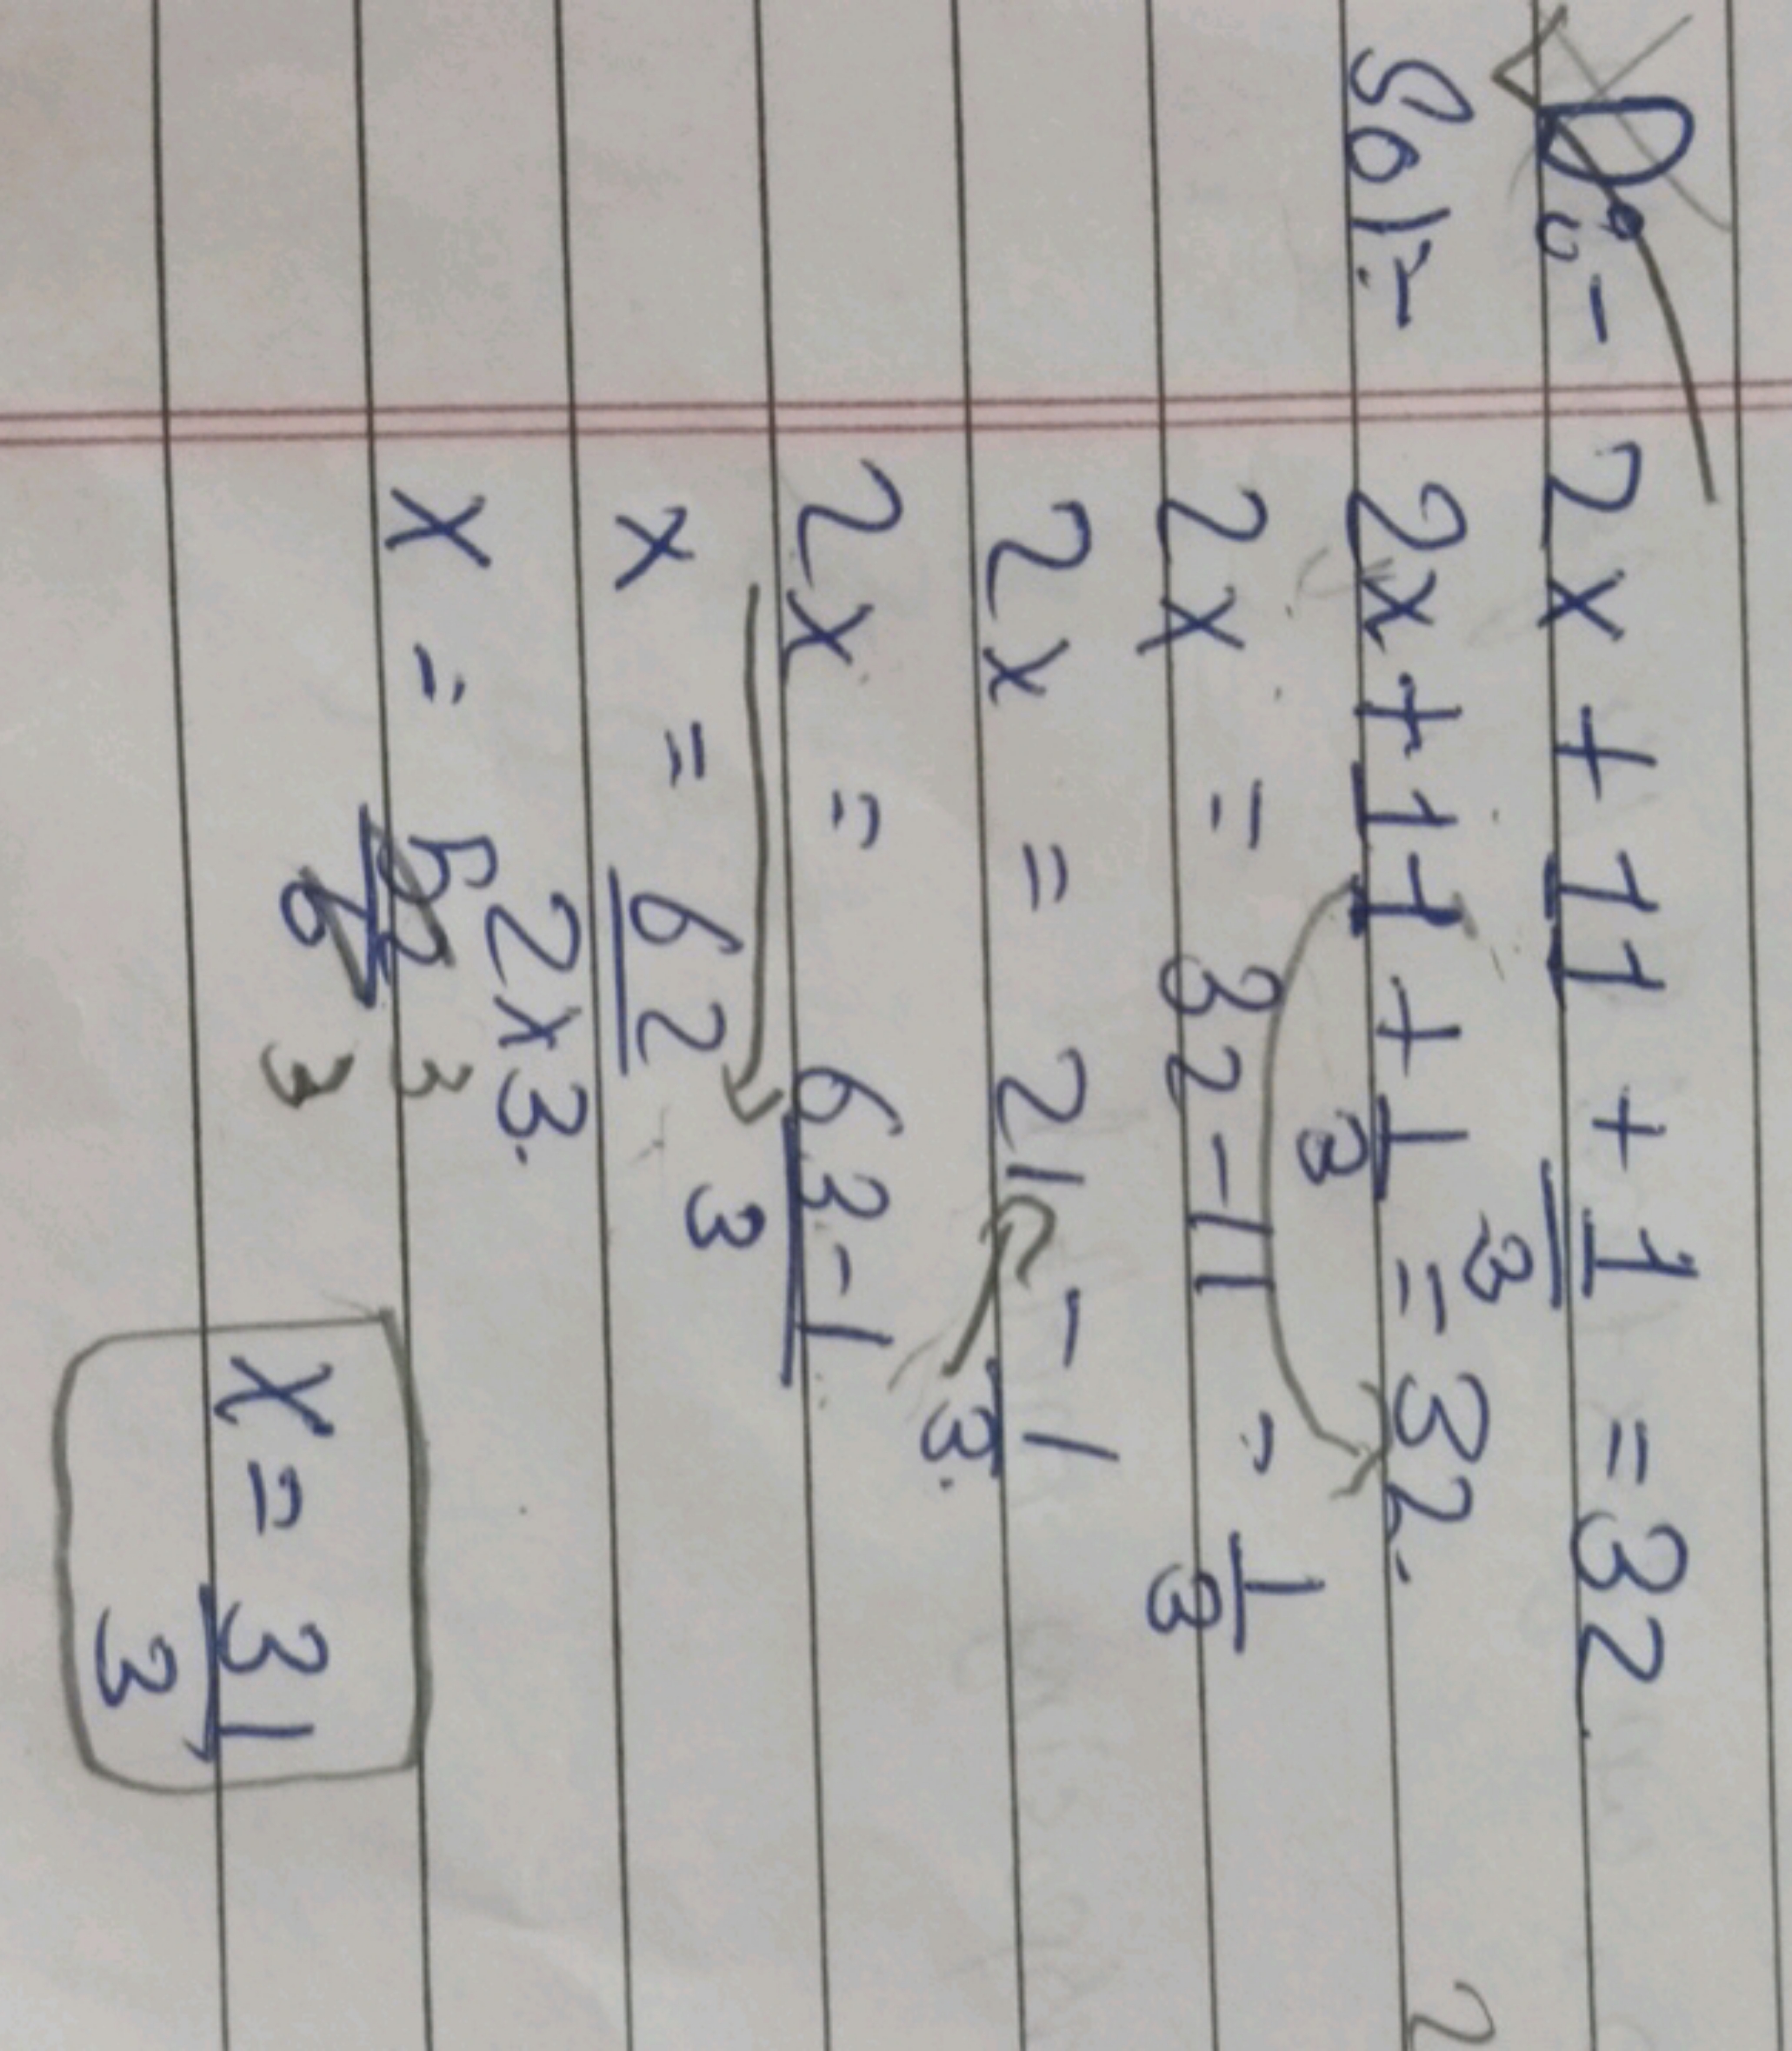 Q:- 2x + 11 + 1/3 = 32
Sol:- 2x + 11 + 1/3 = 32.
2x = 32 - 11 - 1/3
2x = 21 - 1/3.
2x = 63 - 1 / 3
x = 62 / 2 x 3.
x = / 6 3 3
x = 31/3
2